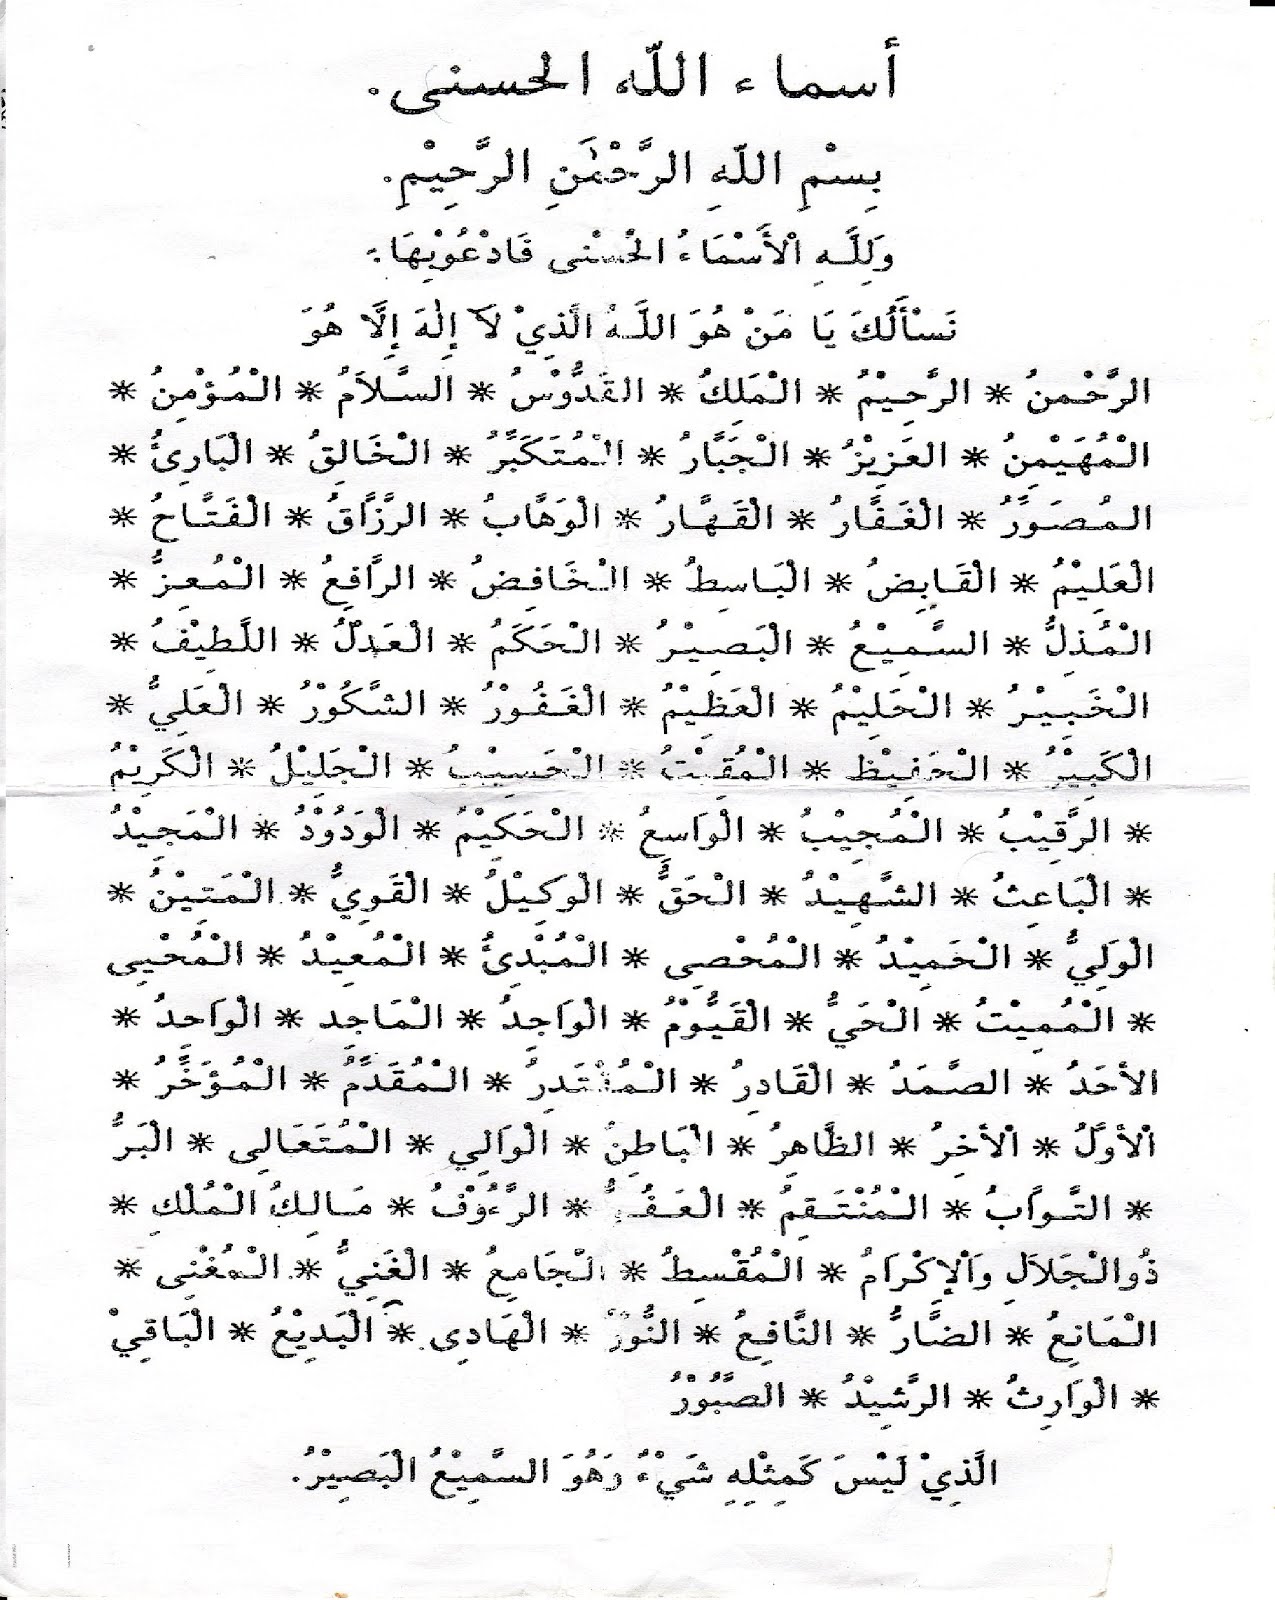 أسماء الله الحسنى.
بِسْمِ اللّهِ الرَّحْمٰنِ الرَّحِيْمِ.
وَلِلَّهِ الْأَسْمَاءُ الْحُسْنى فَادْعُوْبِهَا:
نَسْأَلُكَ يَا مَنْ هُوَ اللَّهُ الَّذِيْ لَآ إِلٰهَ إِلَّا هُوَ
الرَّحْمنُ * الرَّحِيْمُ * الْمَلِكُ * القُدُّوْسُ * السَّلاَمُ * الْمُؤْمِنُ *
الْمُهَيْمِنُ * العَزِيْزُ * الْجَبَّارُ * الْمُتَكَبِّرُ * الْخَالِقُ * الْبَارِئُ *
المُصَوِّرُ * الْغَفَّارُ * الْقَهَّارُ * الْوَهَّابُ * الرَّزَّاقُ * الْفَتَّاحُ *
الْعَلِيْمُ * الْقَابِضُ * الْبَاسِطُ * الْخَافِضُ * الرَّافِعُ * الْمُعِزُّ *
الْمُذِلُّ * السَّمِيْعُ * الْبَصِيْرُ * الْحَكَمُ * الْعَدْلُ * اللَّطِيْفُ *
الْخَبِيْرُ * الْحَلِيْمُ * الْعَظِيْمُ * الْغَفُوْرُ * الشَّكُوْرُ * الْعَلِيُّ *
الْكَبِيْرُ * الْحَفِيْظ * الْمُقِيْتُ * الْحَسِيْبُ * الْجَلِيْلُ * الْكَرِيْمُ
* الرَّقِيْبُ * الْمُجِيْبُ * الْوَاسِعُ * الْحَكِيْمُ * الْوَدُوْدُ * الْمَجِيْدُ
* الْبَاعِثُ * الشَّهِيْدُ * الْحَقُّ * الْوَكِيْلُ * الْقَوِيُّ * الْمَتِيْنُ *
الْوَلِيُّ * الْحَمِيْدُ * الْمُحْصِى * الْمُبْدِئُ * الْمُعِيْدُ * الْمُحْيِى
* الْمُمِيْتُ * الْحَيُّ * الْقَيُّوْمُ * الْوَاجِدُ * الْمَاجِد * الْوَاحِدُ *
الأَحَدُ * الصَّمَدُ * الْقَادِرُ * الْمُقْتَدِرُ * الْمُقَدِّمُ * الْمُؤَخِّرُ *
اْلأَوَّلُ * اْلأخِرُ * الظَّاهِرُ * الْبَاطِنُ * الْوَالِي * الْمُتَعَالِى * الْبَرُّ
* التَّوَّابُ * الْمُنْتَقِمُ * الْعَفُوُّ * الرَّءُوْفُ * مَالِكُ الْمُلْكِ *
ذُوالْجَلاَلِ وَاْلإِكْرَامُ * الْمُقْسِطُ * الْجَامِعُ * الْغَنِيُّ * الْمُغْنِى *
الْمَانِعُ * الضَّارُّ * النَّافِعُ * النُّوْرُ * الْهَادِى * الْبَدِيْعُ * الْبَاقِيْ
* الْوَارِثُ * الرَّشِيْدُ * الصَّبُوْرُ
الَّذِيْ لَيْسَ كَمِثْلِهِ شَيْءٌ وَهُوَ السَّمِيْعُ الْبَصِيْرُ.